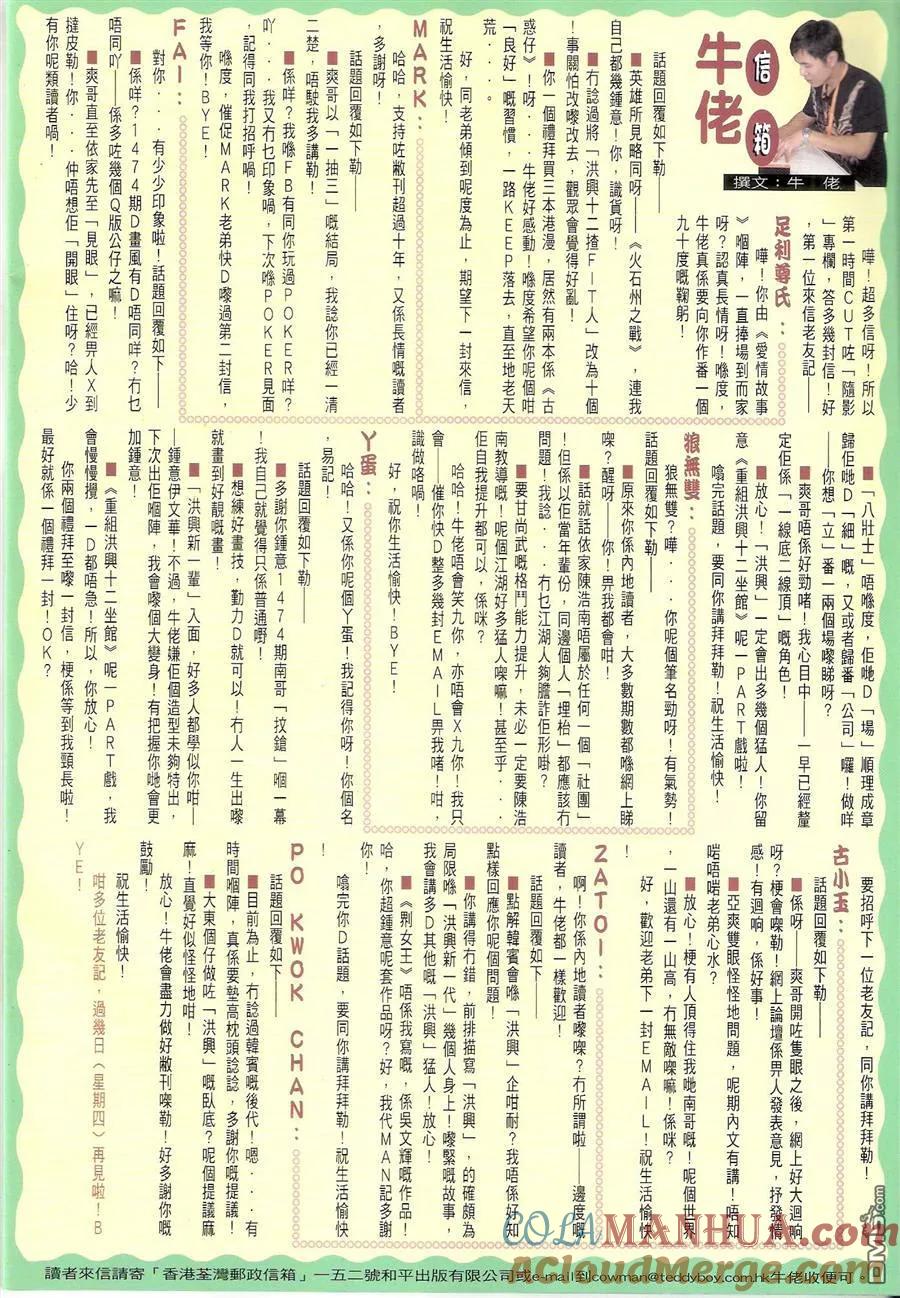 牛佬
信箱
撰文：牛　佬
嘩！超多信呀！所以
第一時間ＣＵＴ咗「隨影
」專欄，答多幾封信！好
，第一位來信老友記——
足利尊氏：
嘩！你由《愛情故事
》嗰陣，一直捧場到而家
呀？認真長情呀！喺度，
牛佬真係要向你作番一個
九十度嘅鞠躬！
話題回覆如下勒——
■英雄所見略同呀——《火石州之戰》，連我
自己都幾鍾意！你，識貨呀！
■冇諗過將「洪興十二揸ＦＩＴ人」改為十個
！事關怕改嚟改去，觀眾會覺得好亂！
■你一個禮拜買三本港漫，居然有兩本係《古
惑仔》！呀．．．牛佬好感動！喺度希望你呢個咁
「良好」嘅習慣，一路ＫＥＥＰ落去，直至地老天
荒．．．。
好，同老弟傾到呢度為止，期望下一封來信，
祝生活愉快！
ＭＡＲＫ：
哈哈，支持咗敝刊超過十年，又係長情嘅讀者
，多謝呀！
話題回覆如下勒——
■爽哥以「一抽三」嘅結局，我諗你已經一清
二楚，唔駛我多講勒！
■係咩？我喺ＦＢ有同你玩過ＰＯＫＥＲ咩？
吖．．．我又冇乜印象喎，下次喺ＰＯＫＥＲ見面
，記得同我打招呼喎！
喺度，催促ＭＡＲＫ老弟快Ｄ嚟過第二封信，
我等你！ＢＹＥ！
ＦＡＩ：
對你．．．有少少印象啦！話題回覆如下——
■係咩？１４７４期Ｄ畫風有Ｄ唔同咩？冇乜
唔同吖——係多咗幾個Ｑ版公仔之嘛！
■爽哥直至依家先至「見眼」，已經畀人Ｘ到
撻皮勒！你．．．仲唔想佢「開眼」住呀？哈！少
有你呢類讀者喎！
■「八壯士」唔喺度，佢哋Ｄ「場」順理成章
歸佢哋Ｄ「細」嘅，又或者歸番「公司」囉！做咩
——你想「立」番一兩個場嚟睇呀？
■爽哥唔係好勁啫！我心目中——一早已經釐
定佢係「一線底二線頂」嘅角色！
■放心！「洪興」一定會出多幾個猛人！你留
意《重組洪興十二坐館》呢一ＰＡＲＴ戲啦！
噏完話題，要同你講拜拜勒！祝生活愉快！
狼無雙：
狼無雙？嘩．．．你呢個筆名勁呀！有氣勢！
話題回覆如下勒——
■原來你係內地讀者，大多數期數都喺網上睇
㗎？醒呀——你！畀我都會咁！
■話就話依家陳浩南唔屬於任何一個「社團」
！但係以佢當年輩份，同邊個人「埋枱」都應該冇
問題！我諗．．．冇乜江湖人夠膽詐佢形啩？
■要甘尚武嘅格鬥能力提升，未必一定要陳浩
南教導嘅！呢個江湖好多猛人㗎嘛！甚至乎．．．
佢自我提升都可以，係咪？
哈哈！牛佬唔會笑九你，亦唔會Ｘ九你！我只
會——催你快Ｄ整多幾封ＥＭＡＩＬ畀我啫！咁，
識做咯喎！
好，祝你生活愉快！ＢＹＥ！
丫蛋：
哈哈！又係你呢個丫蛋！我記得你呀！你個名
，易記！
話題回覆如下勒——
■多謝你鍾意１４７４期南哥「抆鎗」嗰一幕
！我自己就覺得只係普通嘢！
■想練好畫技，勤力Ｄ就可以！冇人一生出嚟
就畫到好靚嘅畫！
■「洪興新一輩」入面，好多人都學似你咁——
——鍾意伊文華！不過，牛佬嫌佢個造型未夠特出，
下次出佢嗰陣，我會嚟個大變身！有把握你哋會更
加鍾意！
■《重組洪興十二坐館》呢一ＰＡＲＴ戲，我
會慢慢攪，一Ｄ都唔急！所以，你放心！
你兩個禮拜至嚟一封信，梗係等到我頸長啦！
最好就係一個禮拜一封！ＯＫ？
要招呼下一位老友記，同你講拜拜勒！
古小玉：
話題回覆如下勒——
■係呀——爽哥開咗隻眼之後，網上好大迴响
呀？梗會㗎勒！網上論壇係畀人發表意見，抒發情
感！有迴响，係好事！
■亞爽雙眼怪怪地問題，呢期內文有講！唔知
啱唔啱老弟心水？
■放心！梗有人頂得住我哋南哥嘅！呢個世界
，一山還有一山高，冇無敵㗎嘛！係咪？
好，歡迎老弟下一封ＥＭＡＩＬ！祝生活愉快
！
ＺＡＴＯＩ：
啊！你係內地讀者嚟㗎？冇所謂啦——邊度嘅
讀者，牛佬都一樣歡迎！
話題回覆如下——
■點解韓賓會喺「洪興」企咁耐？我唔係好知
點樣回應你呢個問題！
■你講得冇錯，前排描寫「洪興」，的確頗為
局限喺「洪興新一代」幾個人身上！嚟緊嘅故事，
我會講多Ｄ其他嘅「洪興」猛人！放心！
■《荆女王》唔係我寫嘅，係吳文輝嘅作品！
哈，你超鍾意呢套作品呀？好，我代ＭＡＮ記多謝
你！
噏完你Ｄ話題，要同你講拜拜勒！祝生活愉快
！
ＰＯ　ＫＷＯＫ　ＣＨＡＮ：
話題回覆如下——
■目前為止，冇諗過韓賓嘅後代！嗯．．．有
時間嗰陣，真係要墊高枕頭諗諗，多謝你嘅提議！
■大東個仔做咗「洪興」嘅臥底？呢個提議麻
麻！直覺好似怪怪地咁！
放心！牛佬會盡力做好敝刊㗎勒！好多謝你嘅
鼓勵！
祝生活愉快！
咁多位老友記，過幾日（星期四）再見啦！Ｂ
ＹＥ！
COLAMANHUA.com
AlreadyCloud.com
讀者來信請寄「香港荃灣郵政信箱」一五二號和平出版有限公司或e-mail到cowman@teddyboy.com.hk牛佬收便可。